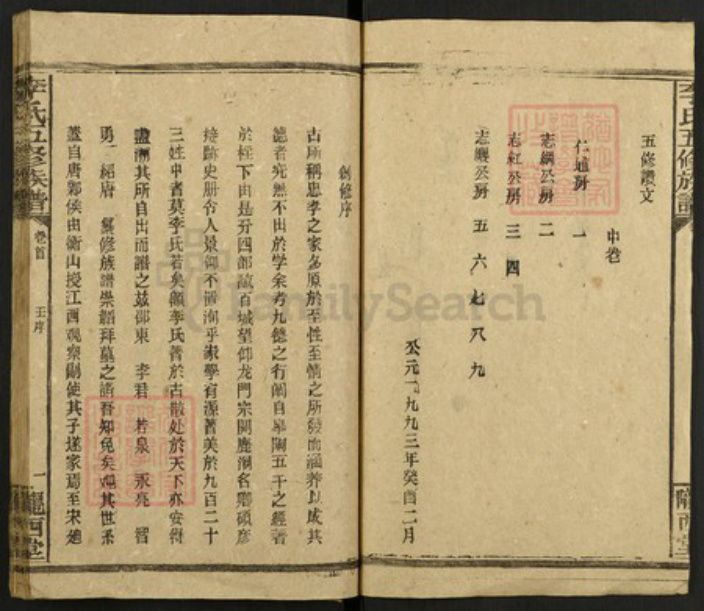 五修讚文
中卷
仁廸房 一
志綱公房 二
志紅公房 三 四
志驥公房 五 六 七 八 九
公元一九九三年癸酉二月
李氏五修族譜
隴西堂
創修序
古所稱忠孝之家多原於至性至情之所發而涵养以成其
德者究無不出於学余考九德之行闡自皋陶五千之經著
於柱下由是分四部藏百城望仰龙門宗開鹿洞名卿碩彦
接跡史册令人景仰不置洵乎家學有源著美於九百二十
三姓中者莫李氏若矣顧李氏著於古散处於天下亦安得
盡溯其所自出而譜之茲邵東 李君 若泉 永亮 智
勇 紹唐 纂修族譜崇韜拜墓之誚吾知免矣觀其世系
蓋自唐鄴侯由衡山授江西观察副使其子遂家焉至宋
李氏五修族譜
卷首
王序
一
隴西堂
FamilySearch